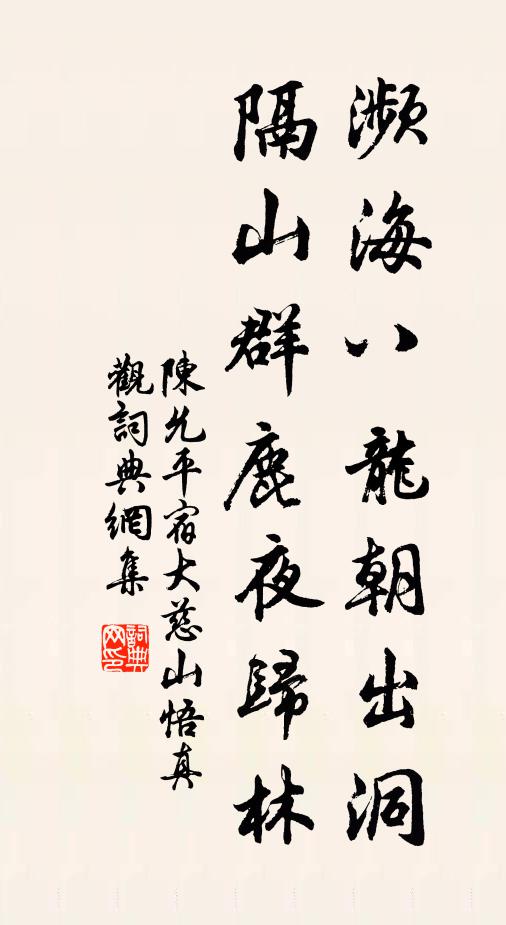 瀕海八龍朝出洞
隔山群鹿夜歸林
陳允平宿大慈山悟真
觀詞典網集
詞典
网印